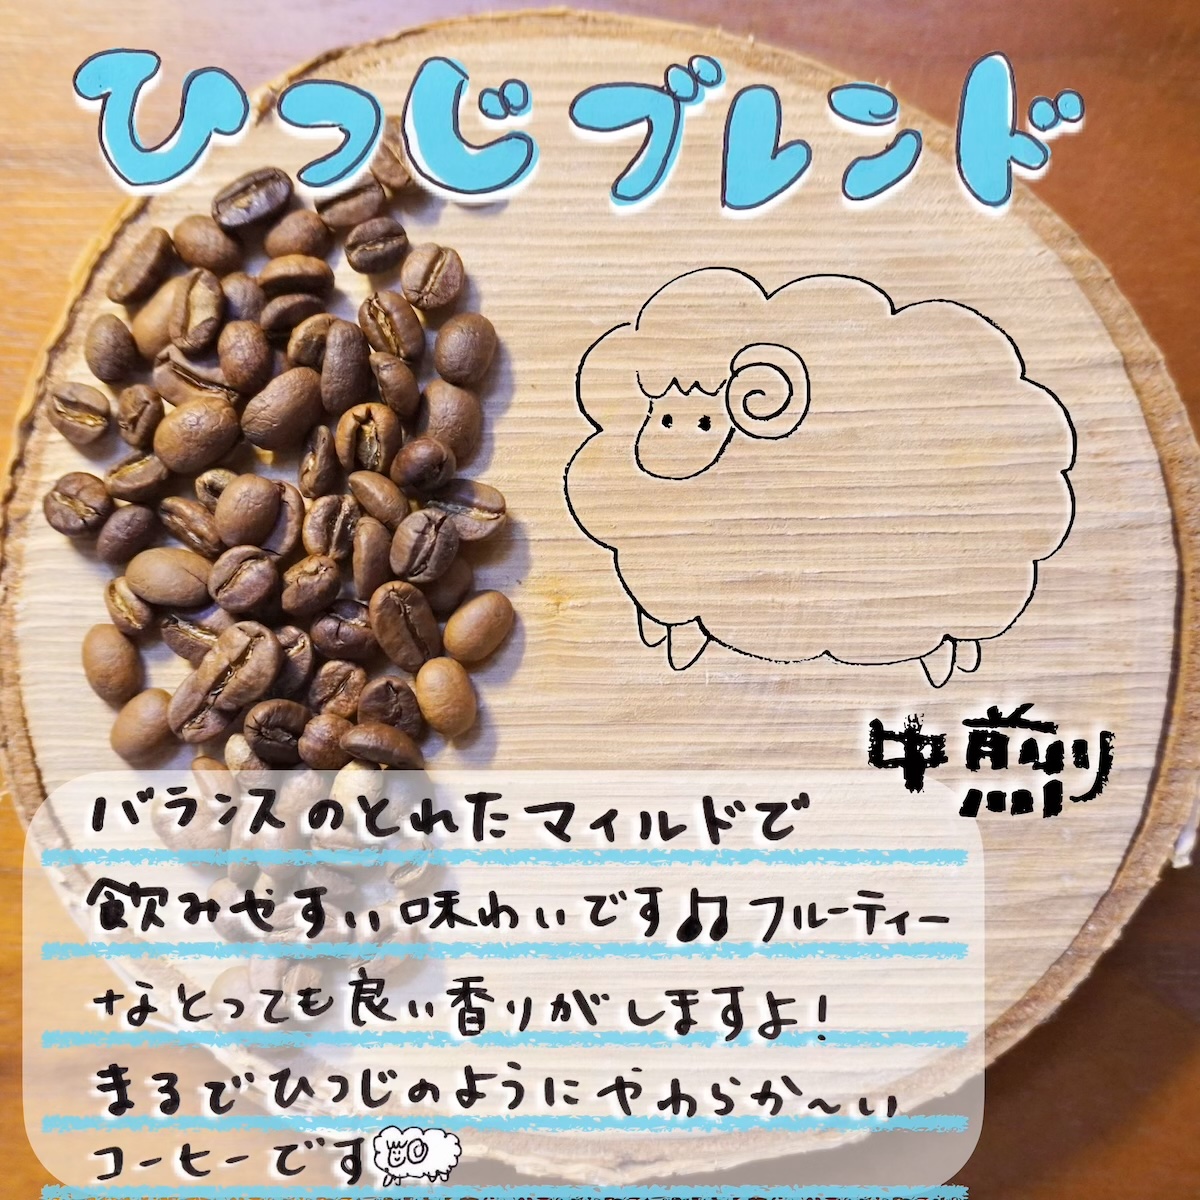 ひつじブレンド
中煎り
バランスのとれたマイルドで
飲みやすい味わいです♫フルーティー
なとっても良い香りがしますよ!
まるでひつじのようにやわらか〜い
コーヒーです